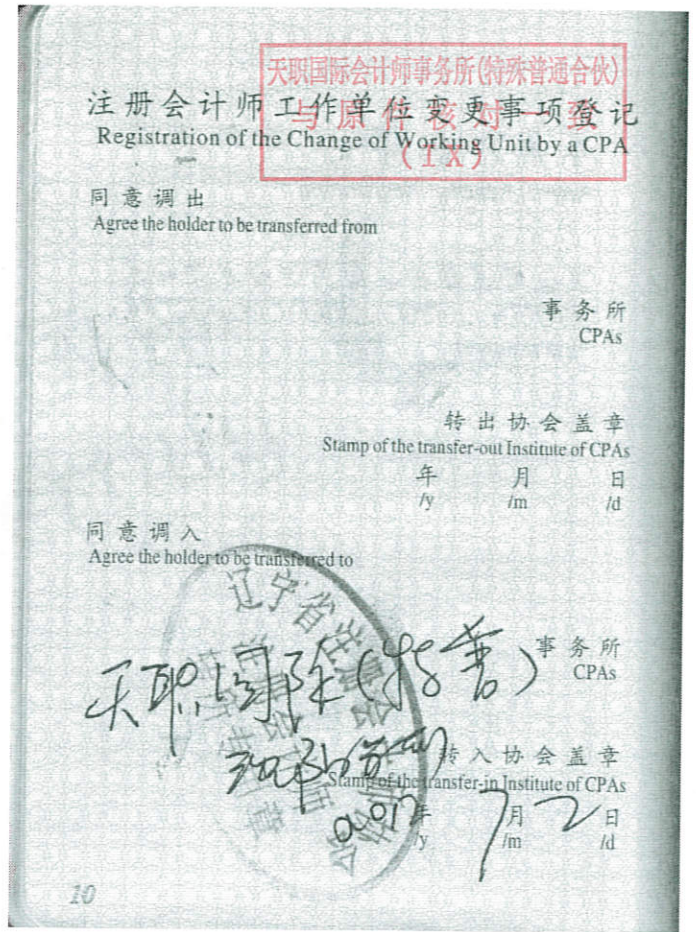 天职国际会计师事务所(特殊普通合伙)
与原件核对一致
(1X)
注册会计师工作单位变更事项登记
Registration of the Change of Working Unit by a CPA
同意调出
Agree the holder to be transferred from
事务所
CPAs
转出协会盖章
Stamp of the transfer-out Institute of CPAs
年 月 日
/y /m /d
同意调入
Agree the holder to be transferred to
辽宁省注册会计师协会
天职国际(特普) 事务所
CPAs
沈阳分所
转入协会盖章
Stamp of the transfer-in Institute of CPAs
年 7月2日
/y /m /d
10